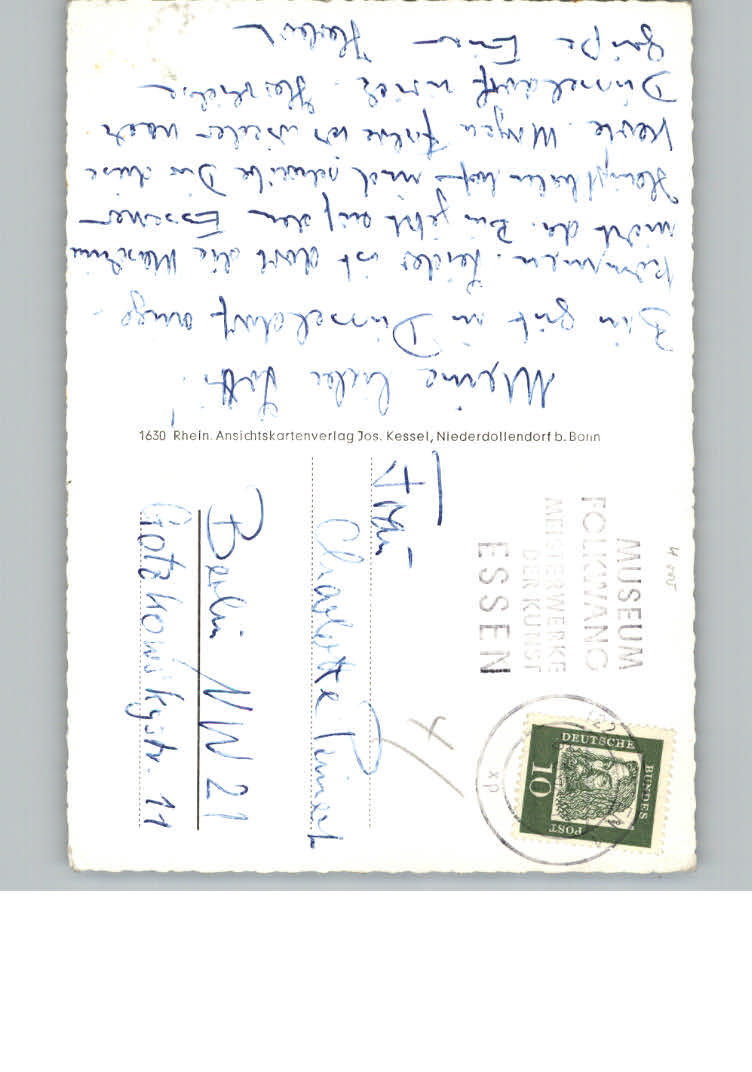 Meine liebe Lotti!
Bin gut in Düsseldorf ange-
kommen. Leider ist dort die Maschine
nicht da. Bin jetzt auf dem Essener
Hauptbahnhof und schreibe Dir diese
Karte. Morgen fahre ich wieder nach
Düsseldorf zurück. Herzliche
Grüße Euer
1630 Rhein. Ansichtskartenverlag Jos. Kessel, Niederdollendorf b. Bonn
MUSEUM
FOLKWANG
MEISTERWERKE
DER KUNST
ESSEN
DEUTSCHE
BUNDES
POST
10
xp
4
Frau
Charlotte
Berlin NW 21
Gotzkowskystr. 11